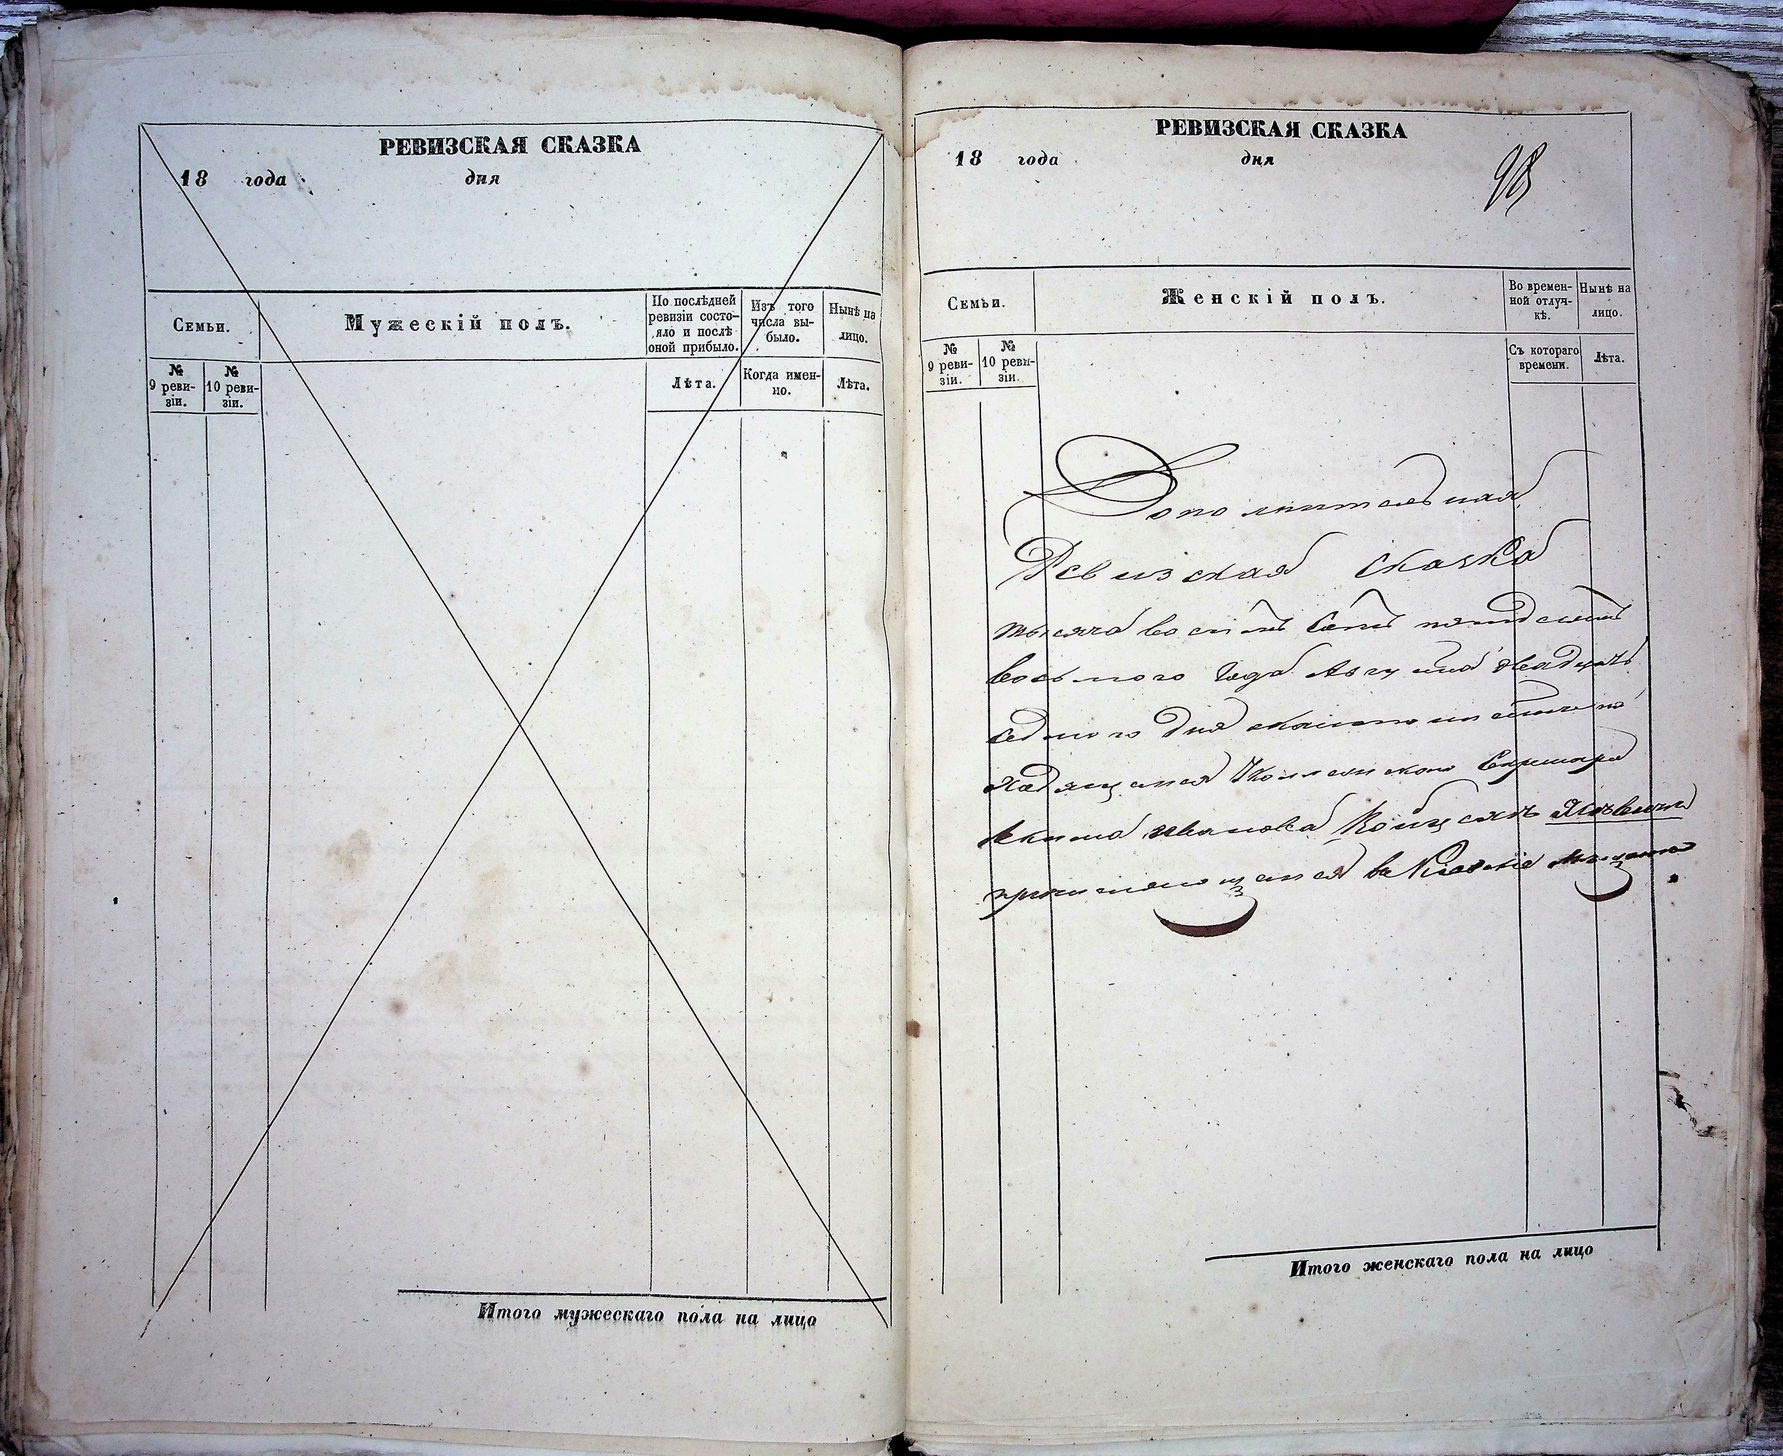 РЕВИЗСКАЯ СКАЗКА
18 года дня
Семьи.
Мужескій полъ.
По послѣдней
ревизіи состо-
яло и послѣ
оной прибыло.
Изъ того
числа вы-
было.
Нынѣ на
лицо.
№
9 реви-
зіи.
№
10 реви-
зіи.
Лѣта.
Когда имен-
но.
Лѣта.
Итого мужескаго пола на лицо
РЕВИЗСКАЯ СКАЗКА
18 года дня
98
Семьи.
Женскій полъ.
Во времен-
ной отлуч-
кѣ.
Нынѣ на
лицо.
№
9 реви-
зіи.
№
10 реви-
зіи.
Съ котораго
времени.
Лѣта.
Дополнительная
Ревизская сказка
тысяча восемь сотъ пятдесятъ
восьмого года Августа двадцать
седмого дня
Секретаря
Якима Иванова
въ
Итого женскаго пола на лицо